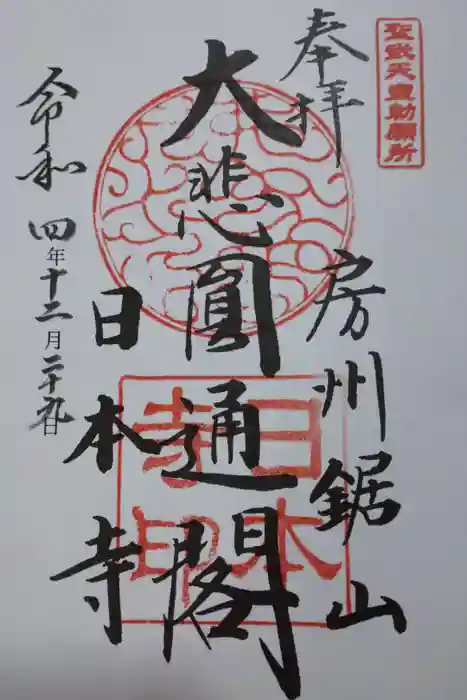 聖武天皇勅願所
奉拝
房州鋸山
大悲圓通閣
日本寺
令和四年十二月二十九日
日本寺印